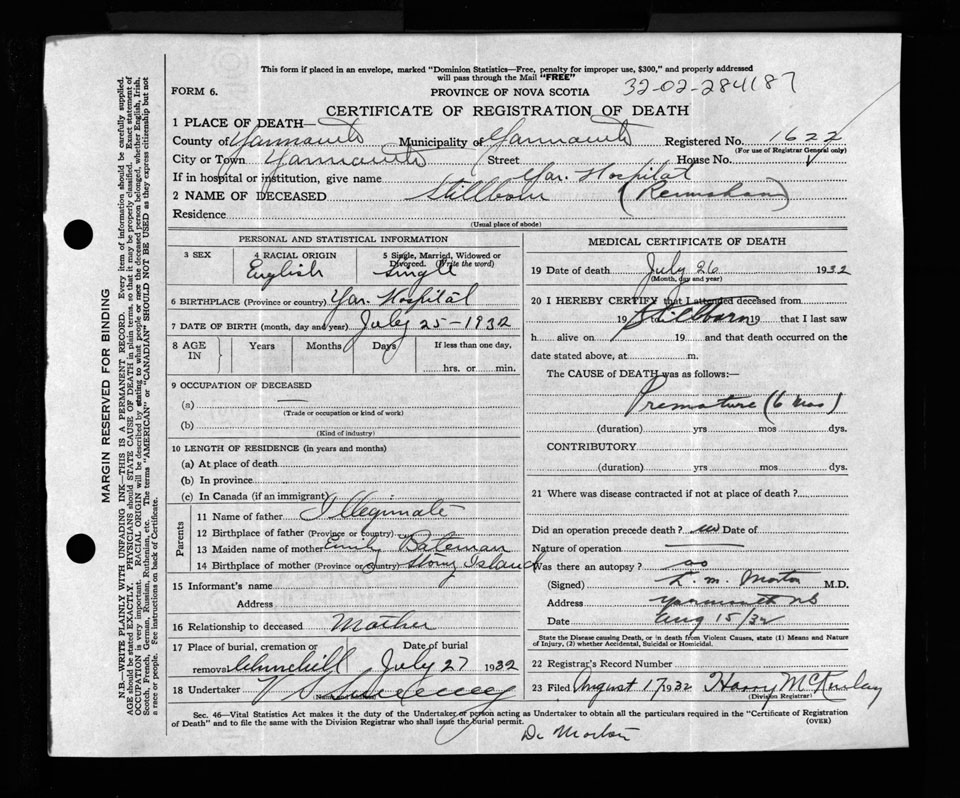 This form if placed in an envelope, marked "Dominion Statistics—Free, penalty for improper use, $300," and properly addressed
will pass through the Mail "FREE"
FORM 6. PROVINCE OF NOVA SCOTIA 32-02-284187
CERTIFICATE OF REGISTRATION OF DEATH
1 PLACE OF DEATH—
County of Yarmouth Municipality of Yarmouth Registered No. 1622
(For use of Registrar General only)
City or Town Yarmouth Street House No.
If in hospital or institution, give name Yar. Hospital
2 NAME OF DECEASED Stillborn
Residence
(Usual place of abode)
PERSONAL AND STATISTICAL INFORMATION
3 SEX 4 RACIAL ORIGIN 5 Single, Married, Widowed or
Divorced. (Write the word)
English Single
6 BIRTHPLACE (Province or country) Yar. Hospital
7 DATE OF BIRTH (month, day and year) July 25-1932
8 AGE IN Years Months Days If less than one day,
hrs. or min.
9 OCCUPATION OF DECEASED
(a) —
(Trade or occupation or kind of work)
(b)
(Kind of industry)
10 LENGTH OF RESIDENCE (in years and months)
(a) At place of death
(b) In province
(c) In Canada (if an immigrant)
Parents
11 Name of father Illegimate
12 Birthplace of father (Province or country)
13 Maiden name of mother Emily Bateman
14 Birthplace of mother (Province or country) Stony Island
15 Informant's name
Address
16 Relationship to deceased Mother
17 Place of burial, cremation or Date of burial
removal Churchill July 27 1932
18 Undertaker
MEDICAL CERTIFICATE OF DEATH
19 Date of death July 26 1932
(Month, day and year)
20 I HEREBY CERTIFY that I attended deceased from
19 Stillborn 19 that I last saw
h alive on 19 and that death occurred on the
date stated above, at m.
The CAUSE of DEATH was as follows:—
Premature (6 mos)
(duration) yrs mos dys.
CONTRIBUTORY
(duration) yrs mos dys.
21 Where was disease contracted if not at place of death?
Did an operation precede death? no Date of
Nature of operation —
Was there an autopsy? no
(Signed) L. M. Morton M.D.
Address Yarmouth NS
Date Aug 15/32
State the Disease causing Death, or in death from Violent Causes, state (1) Means and Nature
of Injury, (2) whether Accidental, Suicidal or Homicidal.
22 Registrar's Record Number
23 Filed August 17 1932 Harry McKinlay
(Division Registrar)
Sec. 46—Vital Statistics Act makes it the duty of the Undertaker or person acting as Undertaker to obtain all the particulars required in the "Certificate of Registration
of Death" and to file the same with the Division Registrar who shall issue the burial permit. (OVER)
Dr Morton
MARGIN RESERVED FOR BINDING
N.B.—WRITE PLAINLY WITH UNFADING INK—THIS IS A PERMANENT RECORD. Every item of information should be carefully supplied.
AGE should be stated EXACTLY. PHYSICIANS should STATE CAUSE OF DEATH in plain terms, so that it may be properly classified. Exact statement of
OCCUPATION is very important. RACIAL ORIGIN will be described by stating to what people or race the deceased person belonged, whether English, Irish,
Scotch, French, German, Russian, Ruthenian, etc. The terms "AMERICAN" or "CANADIAN" SHOULD NOT BE USED as they express citizenship but not
a race or people. See instructions on back of Certificate.